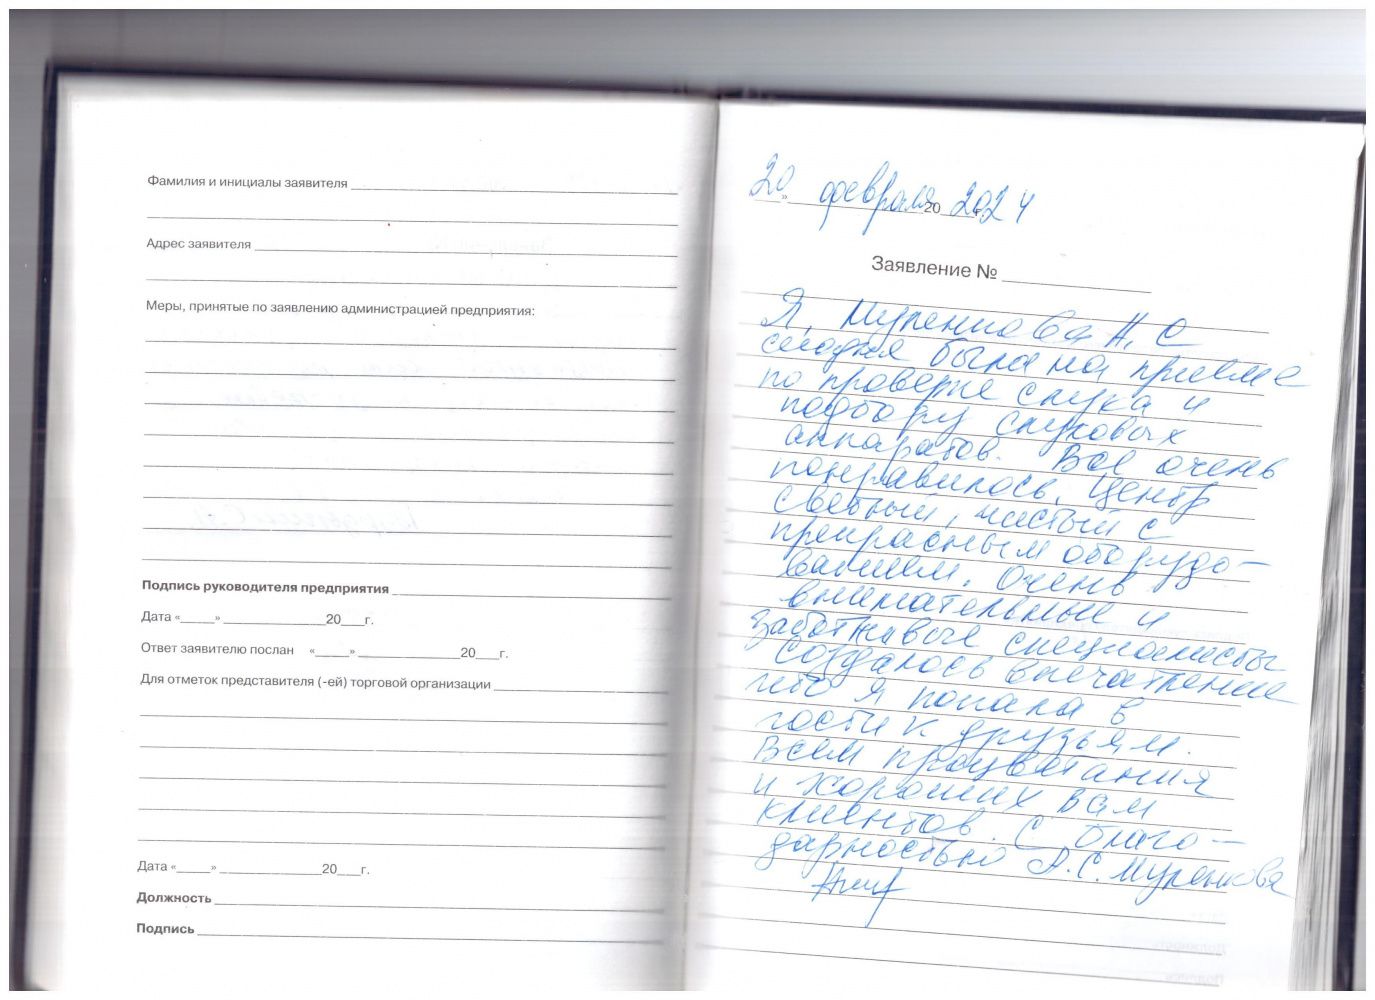 Фамилия и инициалы заявителя
Адрес заявителя
Меры, принятые по заявлению администрацией предприятия:
Подпись руководителя предприятия
Дата «___» ___ 20___г.
Ответ заявителю послан «___» ___ 20___г.
Для отметок представителя (-ей) торговой организации
Дата «___» ___ 20___г.
Должность
Подпись
20 » февраля 20 2024 г.
Заявление №
Я, Муренкова А. С
сегодня была на приеме
по проверке слуха и
подбору слуховых
аппаратов. Все очень
понравилось. Центр
светлый, чистый с
прекрасным оборудо-
ванием. Очень
внимательные и
заботливые специалисты
Создалось впечатление
что я попала в
гости к друзьям.
Всем процветания
и хороших вам
клиентов. С благо-
дарностью А.С. Муренкова